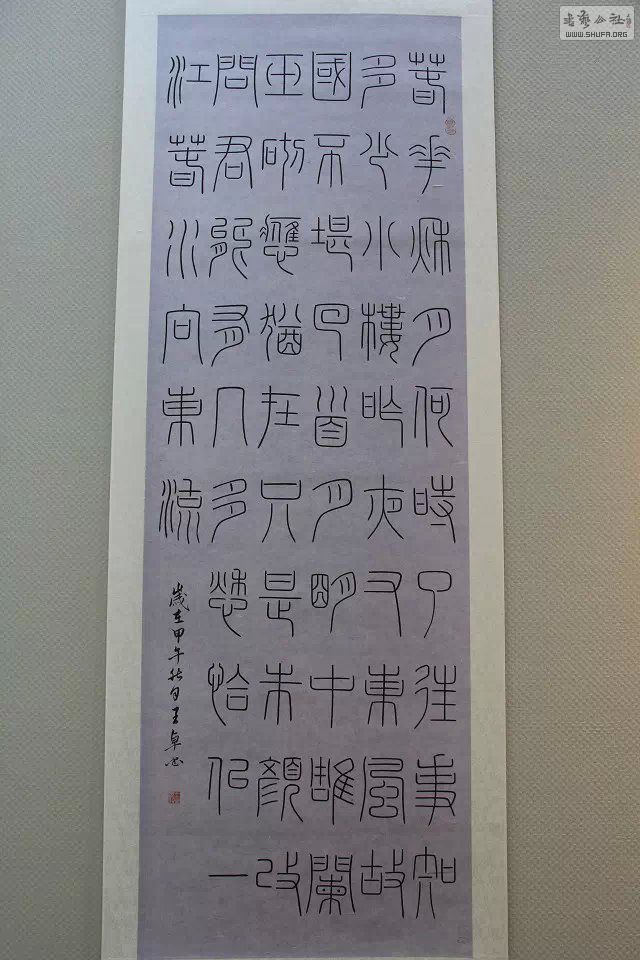 春花秋月何時了往事知
多少小樓昨夜又東風故
國不堪回首月明中雕闌
玉砌應猶在只是朱顏改
問君能有几多愁恰似一
江春水向東流
歲在甲午秋月王卓書
书艺公社
WWW.SHUFA.ORG